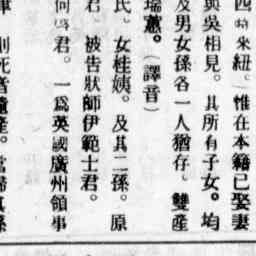 紐。惟在本籍已娶妻
與吳相見。其所有子女。均
及男女孫各一人猶存。雙產
瑞蕙。（譯音）
氏。女桂姨。及其二孫。原
君。被告狀師伊範士君。
何君。一爲英國廣州領事
則死者遺產。當歸其孫